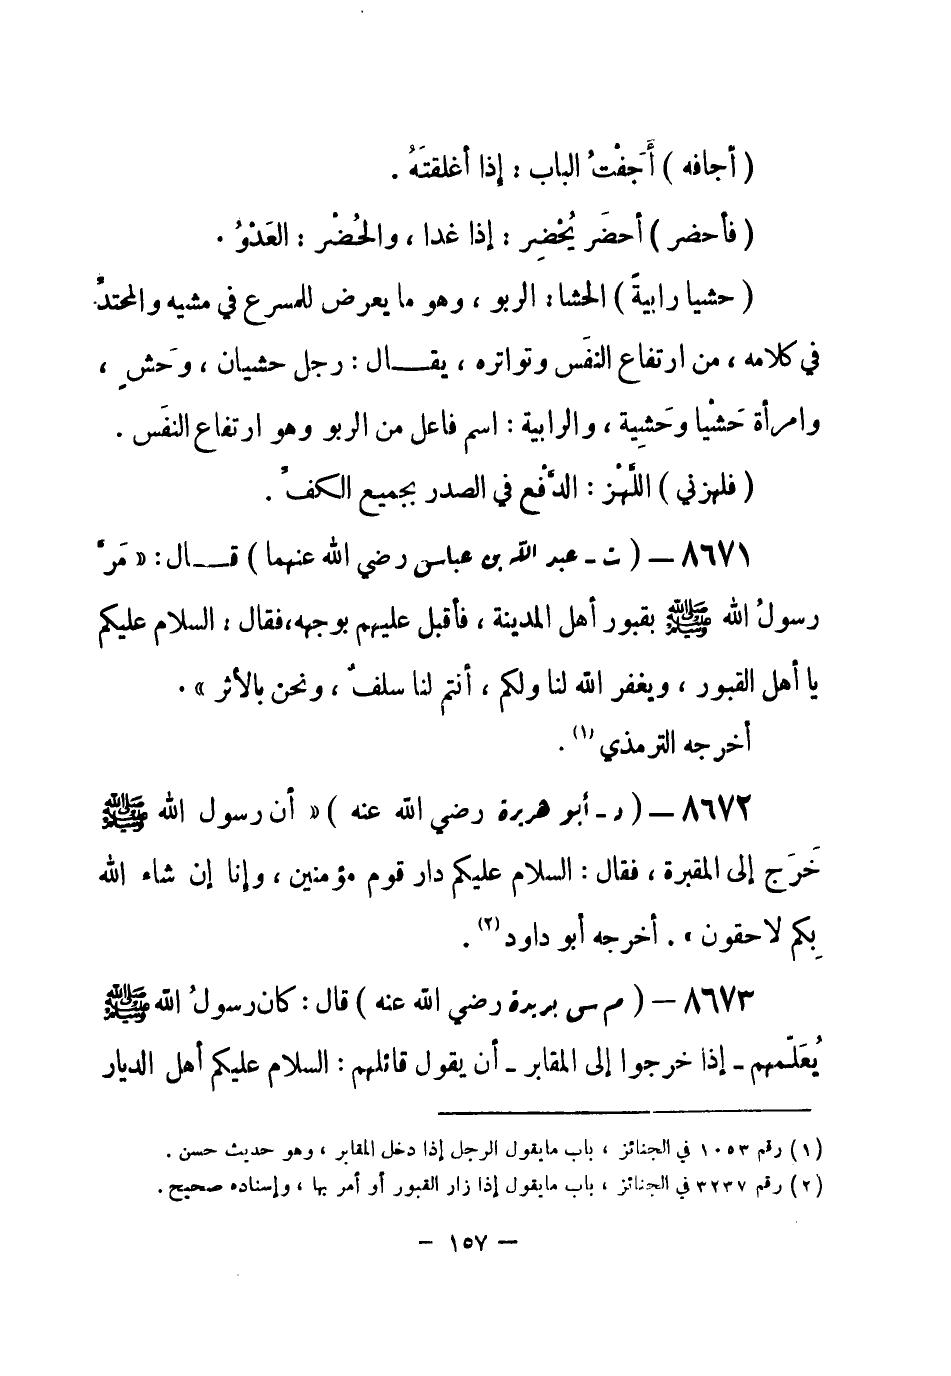 ( أجافه ) أَجَفْتُ الباب : إذا أغلقتَهُ .
( فأحضر ) أحضَر يُحْضِر : إذا غدا ، والحُضْر : العَدْوُ .
( حشيا رابيةً ) الحشا : الربو ، وهو ما يعرض للمسرع في مشيه والمحتدّ
في كلامه ، من ارتفاع النفَس وتواتره ، يقـــال : رجل حشيان ، وَحشٍ ،
وامرأة حَشْيا وحَشِية ، والرابية : اسم فاعل من الربو وهو ارتفاع النفَس .
( فلهزني ) اللَّهْز : الدَّفْع في الصدر بجميع الكفّ .
٨٦٧١ – ( ت ـ عبد الله بن عباس رضي الله عنهما ) قـــال : « مَرَّ
رسولُ الله ﷺ بقبور أهل المدينة ، فأقبل عليهم بوجهه،فقال : السلام عليكم
يا أهل القبور ، ويغفر الله لنا ولكم ، أنتم لنا سلفٌ ، ونحن بالأثر » .
أخرجه الترمذي (١) .
٨٦٧٢ – ( د ـ أبو هريرة رضي الله عنه ) « أن رسول الله ﷺ
خَرَج إلى المقبرة ، فقال : السلام عليكم دار قوم مؤمنين ، وإنا إن شاء الله
بِكم لاحقون » . أخرجه أبو داود (٢) .
٨٦٧٣ – ( م س بريدة رضي الله عنه ) قال : كان رسولُ الله ﷺ
يُعَلّمهم ـ إذا خرجوا إلى المقابر ـ أن يقول قائلهم : السلام عليكم أهل الديار
(١) رقم ١٠٥٣ في الجنائز ، باب مايقول الرجل إذا دخل المقابر ، وهو حديث حسن .
(٢) رقم ٣٢٣٧ في الجنائز ، باب مايقول إذا زار القبور أو أمر بها ، وإسناده صحيح .
– ١٥٧ –